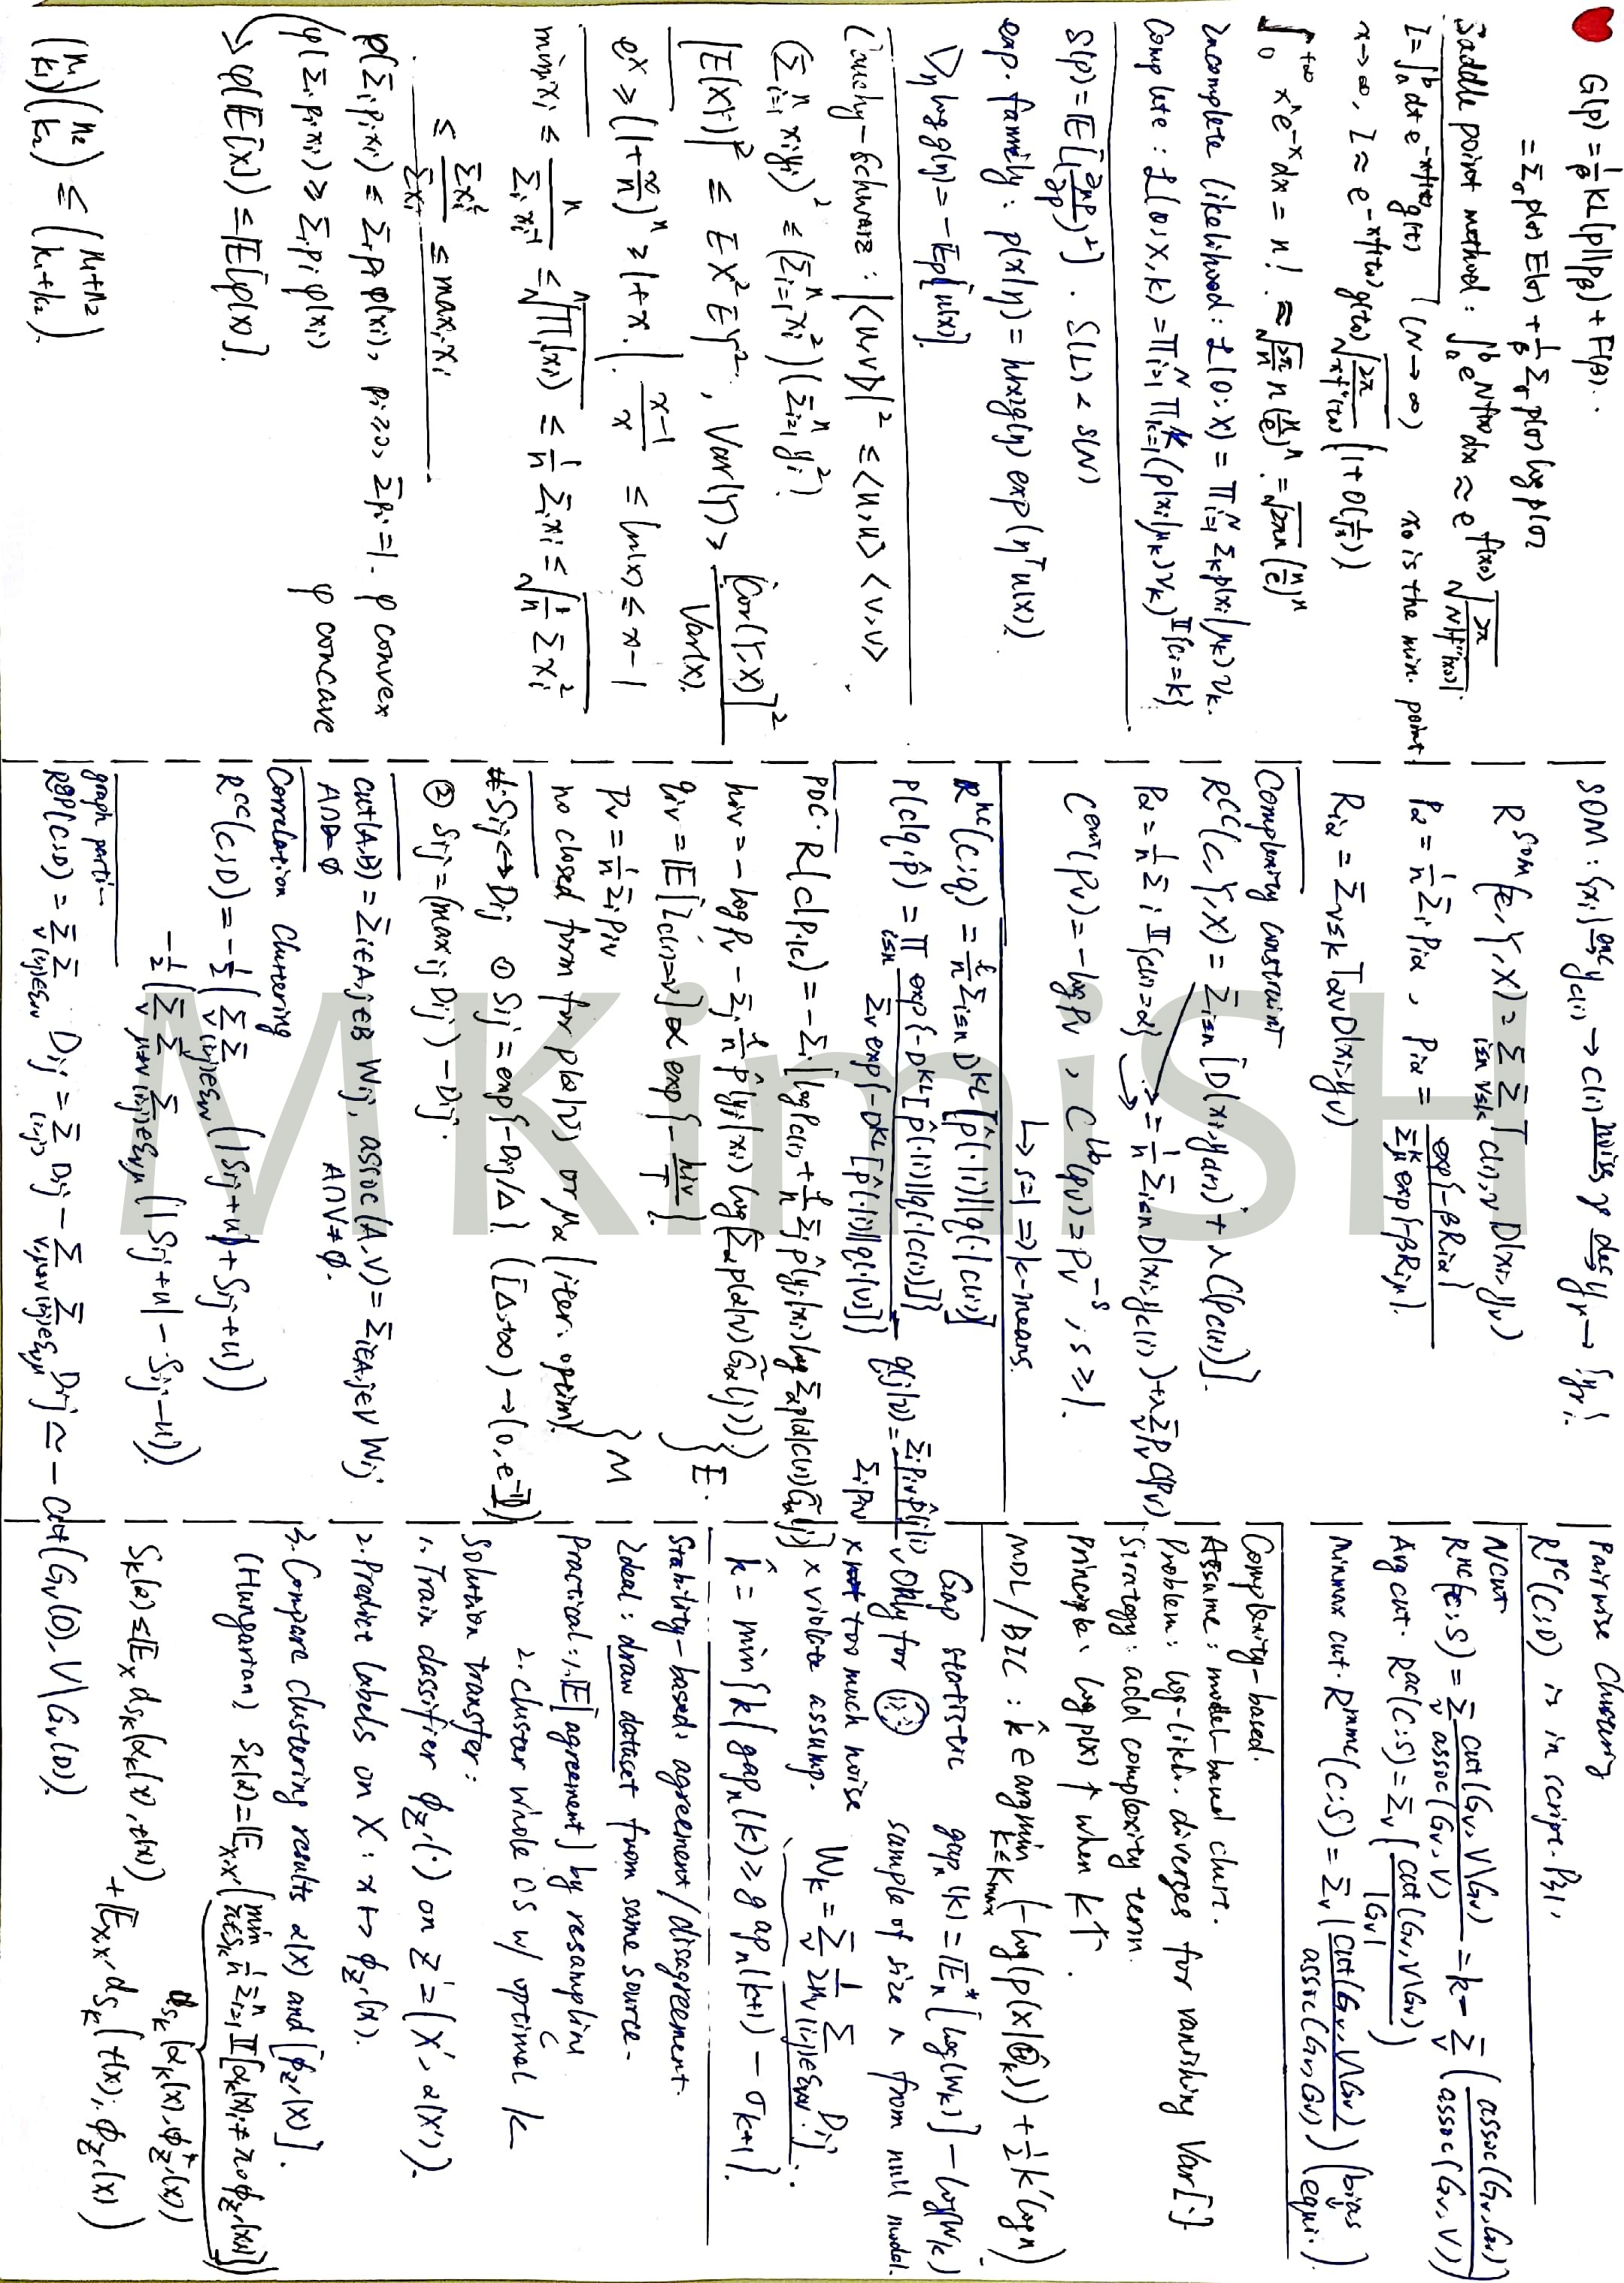 G(p) = 1/β KL(p||pβ) + F(β)..
= Σσ p(σ) E(σ) + 1/β Σσ p(σ) log p(σ)
Saddle point method : ∫_a^b e^{Nf(x)} dx ≈ e^{f(x₀)} √(2π / N|f''(x₀)|).
I = ∫_a^b dt e^{-xf(t)} g(t) (N→∞) x₀ is the min. point
x→∞, I ≈ e^{-xf(t₀)} g(t₀) √(2π / xf''(t₀)) (1 + O(1/√x))
∫_0^{+∞} x^n e^{-x} dx = n! ≈ √(2π/n) n (n/e)^n = √(2πn) (n/e)^n
Incomplete likelihood : L(θ; X) = Π_{i=1}^N Σ_k p(x_i|μ_k) ν_k.
Complete : L(θ; X, k) = Π_{i=1}^N Π_{k=1}^K (p(x_i|μ_k) ν_k)^{𝕀{c_i=k}}
S(p) = E[(∂np/∂p)²] . S(L) < S(N)
exp. family : p(x|η) = h(x)g(η) exp(η^T u(x)).
D_η log g(η) = -E_p[u(x)].
Cauchy-Schwarz : |<u,v>|² ≤ <u,u> <v,v> .
(Σ_{i=1}^n x_i y_i)² ≤ (Σ_{i=1}^n x_i²)(Σ_{i=1}^n y_i²)
|E(XY)|² ≤ EX² EY², Var(Y) ≥ [Cov(Y,X)]² / Var(X).
e^x ≥ (1+x/n)^n ≥ 1+x. | (x-1)/x ≤ ln(x) ≤ x-1
min x_i ≤ n / Σ_i x_i^{-1} ≤ ⁿ√Π_i(x_i) ≤ 1/n Σ_i x_i ≤ √(1/n Σ x_i²)
≤ Σx_i² / Σx_i ≤ max_i x_i
φ(Σ_i p_i x_i) ≤ Σ_i p_i φ(x_i), p_i ≥ 0, Σp_i = 1. φ convex
φ(Σ_i p_i x_i) ≥ Σ_i p_i φ(x_i) φ concave
→ φ(E[X]) ≤ E[φ(x)].
(n₁ k₁)(n₂ k₂) ≤ (n₁+n₂ k₁+k₂).
SOM : {x_i} →enc y_{c(i)} → c(i) →noise γ →dec y_γ → {y_γ}.
R^{SOM}(c, Y, X) = Σ_{i≤n} Σ_{ν≤k} T_{c(i),ν} D(x_i, y_ν)
P_α = 1/n Σ_i p_{iα} , p_{iα} = exp{-βR_{iα}} / Σ_μ^K exp{-βR_{iμ}}.
R_{iα} = Σ_{ν≤k} T_{αν} D(x_i, y_ν)
Complexity constraint
R^{CC}(c, Y, X) = Σ_{i≤n} [D(x_i, y_{c(i)}) + λ C(p_{c(i)})].
p_α = 1/n Σ_i 𝕀{c(i)=α} → = 1/n Σ_{i≤n} D(x_i, y_{c(i)}) + λ Σ_ν p_ν C(p_ν)
C^{ent}(p_ν) = -log p_ν , C^{lb}(p_ν) = p_ν^{-s} , s ≥ 1.
↳ s=1 ⇒ k-means.
R^{hc}(c; q) = ℓ/n Σ_{i≤n} D^{KL}[p̂(·|i)||q(·|c(i))]
p(c|q, p̂) = Π_{i≤n} exp{-D^{KL}[p̂(·|i)||q(·|c(i))]} / Σ_ν exp{-D^{KL}[p̂(·|i)||q(·|ν)]} q(j|ν) = Σ_i p_{iν} p̂(j|i) / Σ_i p_{iν}
PDC. R(c|p_{·|c}) = -Σ_i [log p_{c(i)} + ℓ/n Σ_j p̂(y_j|x_i) log Σ_α p(α|c(i)) G̃_α(j)]
h_{iν} = -log p_ν - Σ_j ℓ/n p̂(y_j|x_i) log(Σ_α p(α|ν) G̃_α(j)) } E.
q_{iν} = E[𝕀_{c(i)=ν}] ∝ exp{-h_{iν}/T}.
p_ν = 1/n Σ_i p_{iν} } M
no closed form for p(α|ν) or μ_α (iter. optim).
S_{ij} ↔ D_{ij} ① S_{ij} = exp{-D_{ij}/Δ}. ([Δ,+∞) → (0, e^{-1}])
② S_{ij} = (max_{ij} D_{ij}) - D_{ij}.
cut(A,B) = Σ_{i∈A, j∈B} W_{ij}, assoc(A,V) = Σ_{i∈A, j∈V} W_{ij}
A∩B=∅ A∩V≠∅.
Correlation Clustering
R^{CC}(C; D) = -1/2 (Σ_ν Σ_{(i,j)∈ε_{νν}} (|S_{ij}+u| + S_{ij}+u))
-1/2 (Σ_ν Σ_{μ≠ν} Σ_{(i,j)∈ε_{νμ}} (|S_{ij}+u| - S_{ij}-u)).
graph parti-
R^{gp}(C; D) = Σ_ν Σ_{(i,j)∈ε_{νν}} D_{ij} = Σ_{(i,j)} D_{ij} - Σ_{ν,μ≠ν} Σ_{(i,j)∈ε_{νμ}} D_{ij} ≃ -cut(G_ν(D), V\G_ν(D)).
Pairwise Clustering
R^{PC}(C; D) is in script. P31.
Ncut
R^{nc}(c; S) = Σ_ν cut(G_ν, V\G_ν) / assoc(G_ν, V) = k - Σ_ν (assoc(G_ν, G_ν) / assoc(G_ν, V))
Avg cut. R^{ac}(C; S) = Σ_ν (cut(G_ν, V\G_ν) / |G_ν|)
Minmax cut. R^{mmc}(C; S) = Σ_ν (cut(G_ν, V\G_ν) / assoc(G_ν, G_ν)) (bias ↓ equi.)
Complexity-based.
Assume : model-based clust.
Problem : log-likh. diverges for vanishing Var[·]
Strategy : add complexity term.
Principle : log p(x) ↑ when k↑ .
MDL/BIC : k̂ ∈ argmin_{k≤Kmax} (-log(p(X|Θ̂_k)) + 1/2 k' log n)
Gap statistic gap_n(k) = E_n^*[log(W_k)] - log(W_k)
✓ Only for sample of size n from null model.
x too much noise
x violate assump. W_k = Σ_ν 1/2n_ν Σ_{(i,j)∈ε_{νν}} D_{ij}.
k̂ = min{k | gap_n(k) ≥ gap_n(k+1) - σ_{k+1}}.
Stability-based : agreement/disagreement.
Ideal : draw dataset from same source.
Practical : 1. E[agreement] by resampling
2. cluster whole DS w/ optimal k
Solution transfer :
1. Train classifier φ_{Z'}(·) on Z' = (X', α(X')).
2. Predict labels on X : x ↦ φ_{Z'}(x).
3. Compare clustering results α(X) and [φ_{Z'}(X)].
(Hungarian) S_k(α) = E_{X,X'} (min_{π∈S_k} 1/n Σ_{i=1}^n 𝕀[α_k(X)_i ≠ π∘φ_{Z'}(X_i)])
d_{S_k}(α_k(X), φ_{Z'}(X))
S_k(α) ≤ E_X d_{S_k}(α_k(X), t(X)) + E_{X,X'} d_{S_k}(t(X), φ_{Z'}(X))
MKinisH